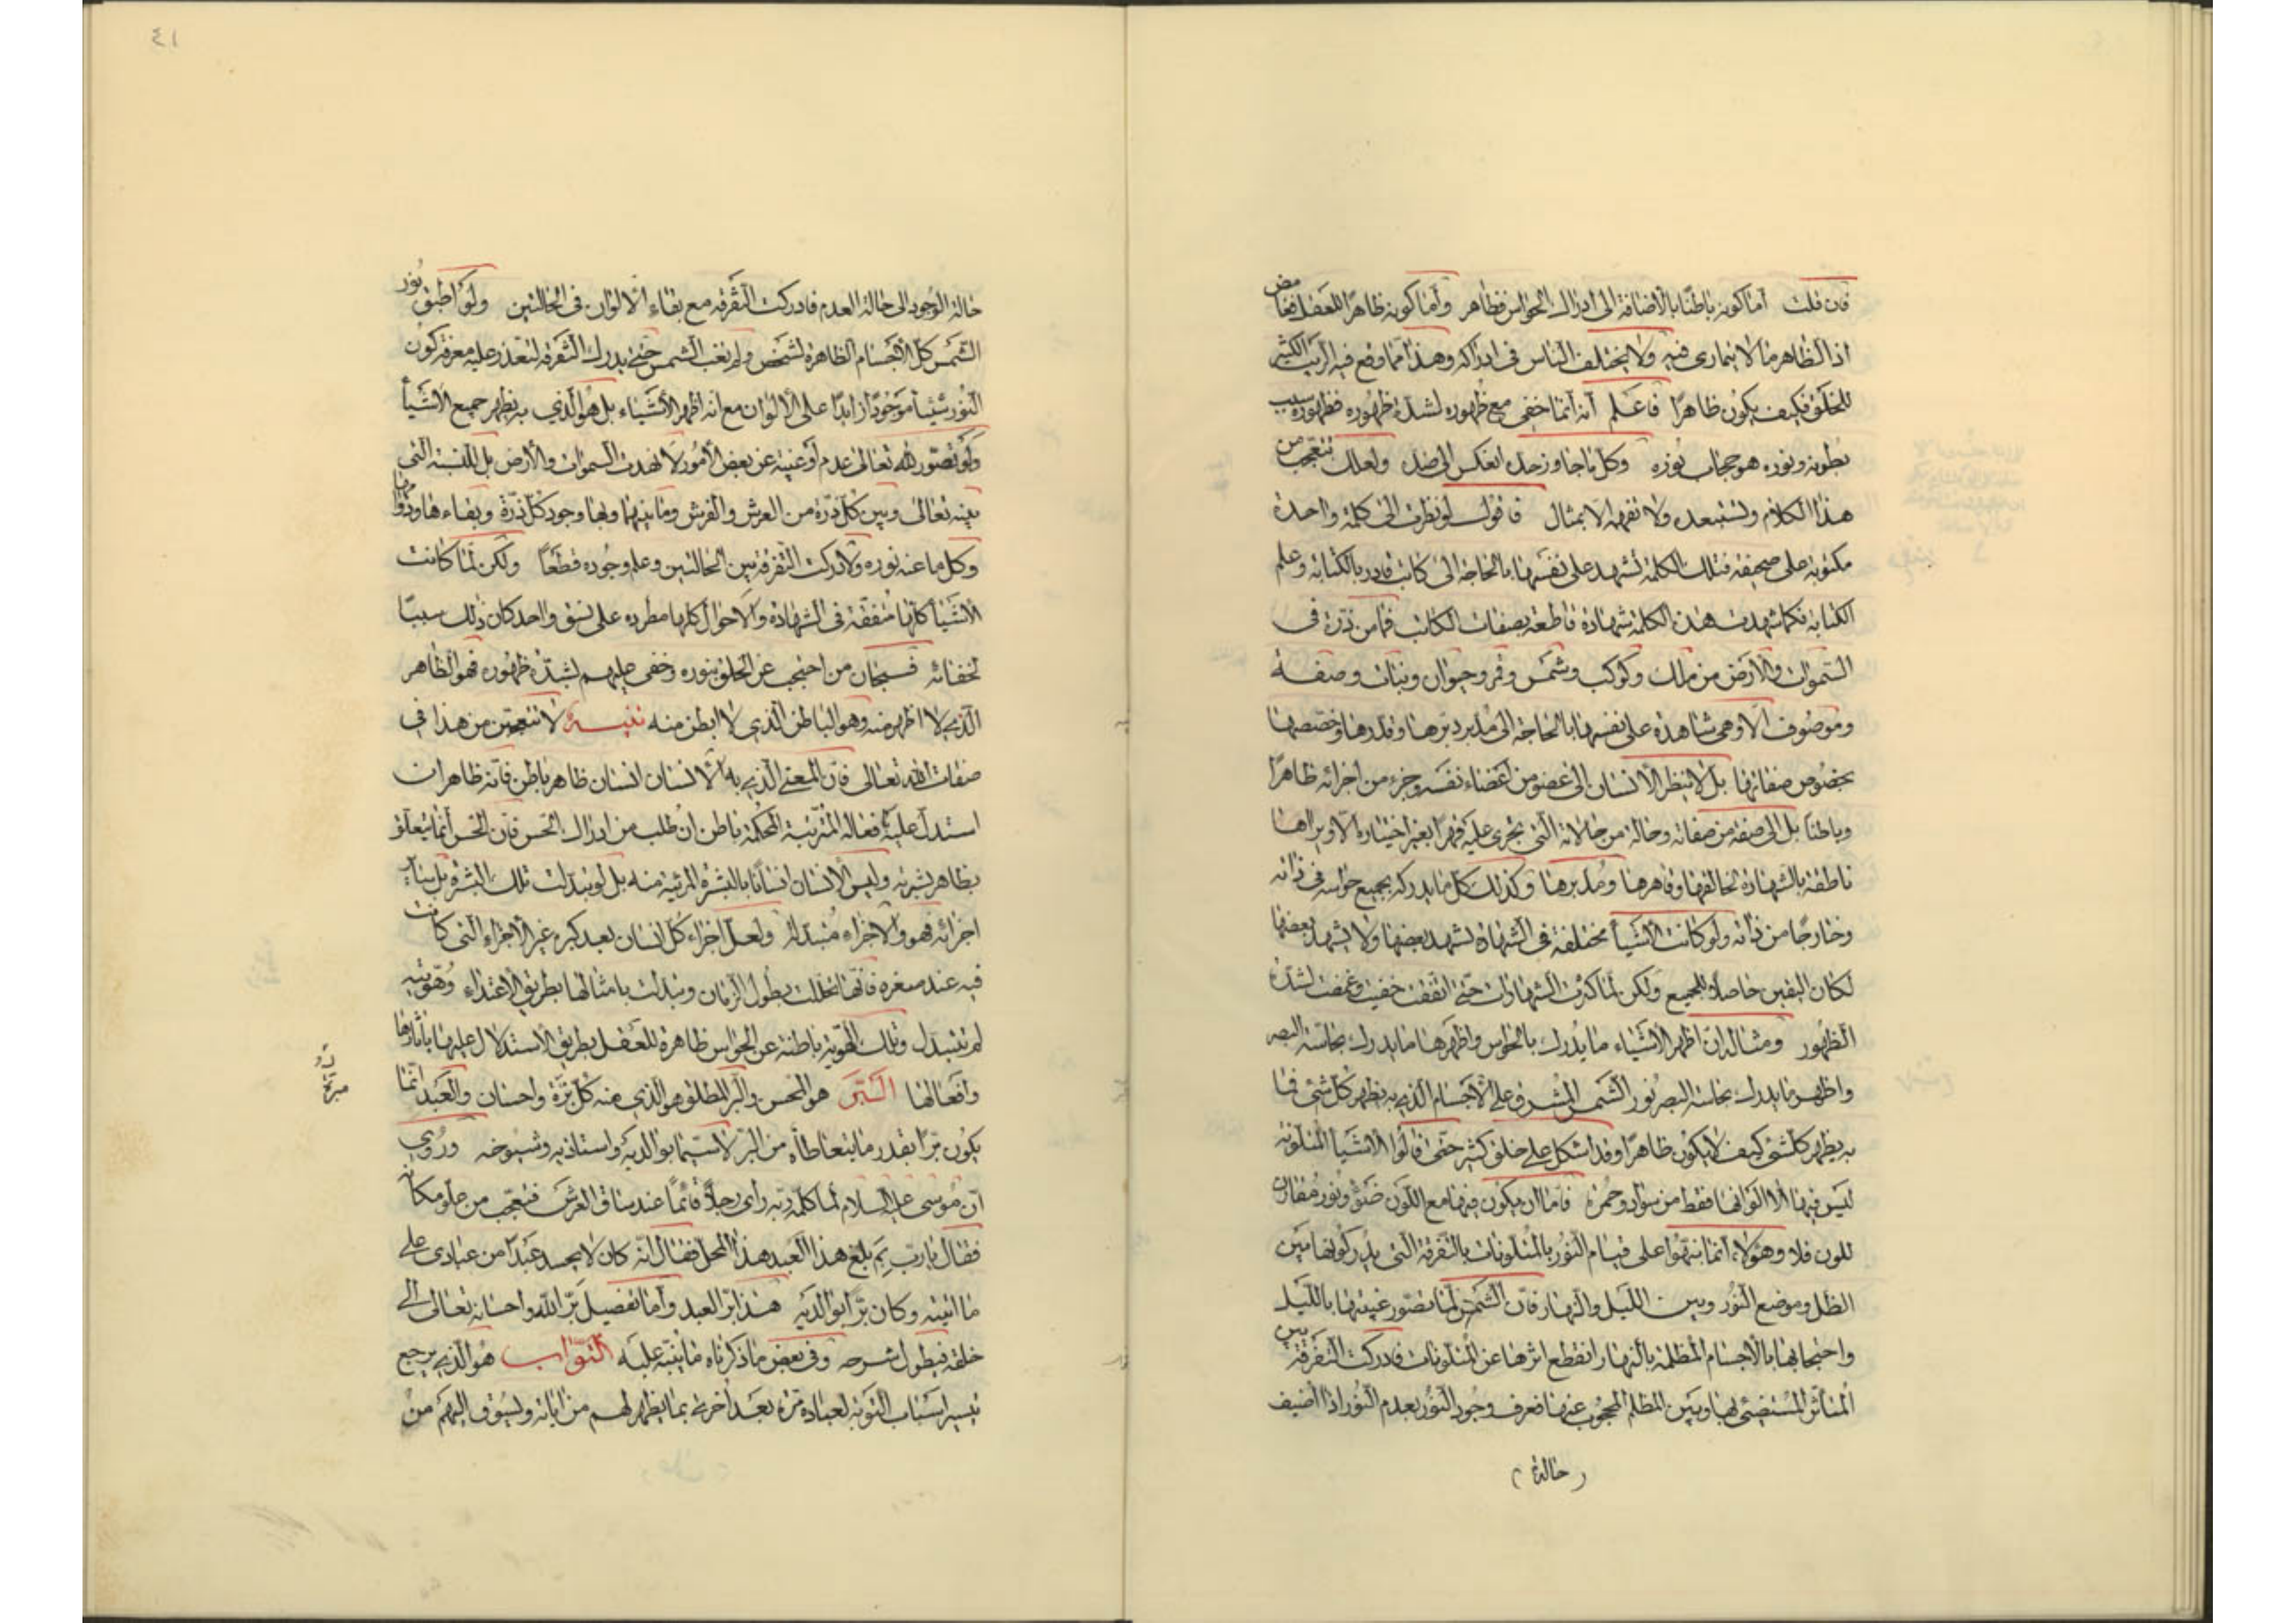 فان قلت اما كونه باطنا بالاضافة الى ادراك الحواس فظاهر واما كونه ظاهرا للعقل فغامض
اذ الظاهر ما لا يتمارى فيه ولا يختلف الناس فى ادراكه وهذا مما وقع فيه الريب الكثير
للخلق فكيف يكون ظاهرا فاعلم انه انما خفى مع ظهوره لشدة ظهوره فظهوره سبب
بطونه ونوره هو حجاب نوره وكل ما جاوز حده انعكس الى ضده ولعلك تتعجب من
هذا الكلام وتستبعده ولا تفهمه الا بمثال فاقول لو نظرت الى كلمة واحدة
مكتوبة على صحيفة فتلك الكلمة تشهد على نفسها بالحاجة الى كاتب قادر بالكتابة وعلم
الكتابة فكما شهدت هذه الكلمة شهادة قاطعة بصفات الكاتب فما من ذرة فى
السموات والارض من ملك وكوكب وشمس وقمر وحيوان ونبات وصفة
وموصوف الا وهى شاهدة على نفسها بالحاجة الى مدبر دبرها وقدرها وخصصها
بخصوص صفاتها بل لا ينظر الانسان الى عضو من اعضاء نفسه وجزء من اجزائه ظاهرا
وباطنا بل الى صفة من صفاته وحالة من حالاته التى تجرى عليه قهرا بغير اختياره الا ويراها
ناطقة بالشهادة لخالقها وقاهرها ومدبرها وكذلك كل ما يدركه بجميع حواسه فى ذاته
وخارجا من ذاته ولو كانت الاشيأ مختلفة فى الشهادة يشهد بعضها ولا يشهد بعضها
لكان اليقين حاصلا للجميع ولكن لما كثرت الشهادات حتى اتفقت خفيت وغمضت لشدة
الظهور ومثاله ان اظهر الاشياء ما يدرك بالحواس واظهرها ما يدرك بحاسة البصر
واظهر ما يدرك بحاسة البصر نور الشمس المشرق على الاجسام الذى به يظهر كل شئ فما
به يظهر كل شئ كيف لا يكون ظاهرا وقد اشكل على خلق كثير حتى قالوا الاشيأ المتلونة
ليس فيها الا الوانها فقط من سواد وحمرة فاما ان يكون فيها مع اللون ضوء ونور مقارن
للون فلا وهؤلاء انما تنبهوا على قيام النور بالمتلونات بالتفرقة التى يدركونها بين
الظل وموضع النور وبين الليل والنهار فان الشمس لما تصور غيبتها بالليل
واحتجابها بالاجسام المظلمة بالنهار انقطع اثرها عن المتلونات فادركت التفرقة بين
المتأثر المستضئ بها وبين المظلم المحجوب عنها فعرف وجود النور بعدم النور اذا اضيف
(حالة)
٤١
حالة الوجود الى حالة العدم فادركت التفرقة مع بقاء الالوان فى الحالتين ولو اطبق نور
الشمس كل الاجسام الظاهرة لشخص ولم تغب الشمس حتى يدرك التفرقة لتعذر عليه معرفة كون
النور شيئا موجودا زايدا على الالوان مع انه اظهر الاشياء بل هو الذى به يظهر جميع الاشيأ
ولو تصور لله تعالى عدم او غيبة عن بعض الامور لانهدت السموات والارض بل للنسبة التى
بينه تعالى وبين كل ذرة من العرش والفرش وما بينهما وبها وجود كل ذرة وبقاءها
وكل ما عنه نوره ولادركت التفرقة بين الحالتين وعلم وجوده قطعا ولكن لما كانت
الاشيأ كلها متفقة فى الشهادة والاحوال كلها مطرده على نسق واحد كان ذلك سببا
لخفائه فسبحان من احتجب عن الخلق بنوره وخفى عليهم لشدة ظهوره فهو الظاهر
الذى لا اظهر منه وهو الباطن الذى لا ابطن منه تنبيه لا تتعجبن من هذا فى
صفات الله تعالى فان المعنى الذى به الانسان انسان ظاهر باطن فانه ظاهر ان
استدل عليه بافعاله المترتبة المحكمة باطن ان طلب من ادراك الحس فان الحس انما يتعلق
بظاهر بشرته وليس الانسان انسانا بالبشرة المرئية منه بل لو تبدلت تلك البشرة بل سائر
اجزائه فهو هو والاجزاء متبدلة ولعل اجزاء كل انسان بعد كبره غير الاجزاء التى كانت
فيه عند صغره فانها تحللت بطول الزمان وتبدلت بامثالها بطريق الاغتذاء وهويته
لم تتبدل وتلك الهوية باطنة عن الحواس ظاهرة للعقل بطريق الاستدلال عليها باثارها
وافعالها البر هو المحسن والبر المطلق هو الذى منه كل برة واحسان والعبد انما
يكون برا بقدر ما يتعاطاه من البر لا سيما بوالديه واستاذيه وشيوخه وروى
ان موسى عليه السلام لما كلمه ربه راى رجلا قائما عند ساق العرش فتعجب من علو مكانه
فقال يا رب بم بلغ هذا العبد هذا المحل فقال انه كان لا يحسد عبدا من عبادى على
ما اتيته وكان برا بوالديه هذا بر العبد واما تفصيل بر الله واحسانه تعالى الى
خلقه فيطول شرحه وفى بعض ما ذكرناه ما ينبه عليه التواب هو الذى يرجع
تيسير اسباب التوبة لعباده مرة بعد اخرى بما يظهر لهم من اياته ويسوق اليهم من